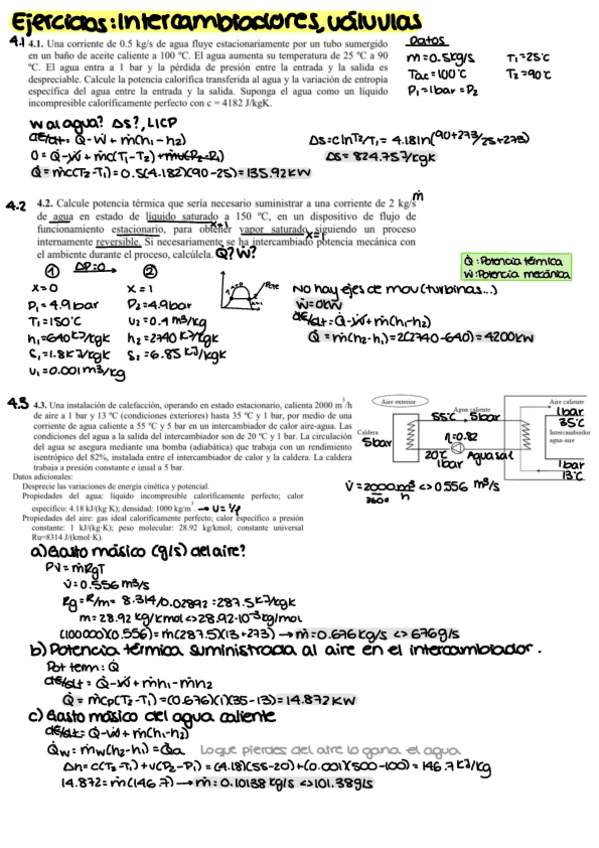 Ejercicios: Intercambiadores, válvulas
4.1 4.1. Una corriente de 0.5 kg/s de agua fluye estacionariamente por un tubo sumergido
en un baño de aceite caliente a 100 ºC. El agua aumenta su temperatura de 25 ºC a 90
ºC. El agua entra a 1 bar y la pérdida de presión entre la entrada y la salida es
despreciable. Calcule la potencia calorífica transferida al agua y la variación de entropía
específica del agua entre la entrada y la salida. Suponga el agua como un líquido
incompresible caloríficamente perfecto con c = 4182 J/kgK.
Datos
ṁ = 0.5kg/s T₁ = 25ºC
Tac = 100ºC T₂ = 90ºC
P₁ = 1bar = P₂
W al agua? Δs?, LICP
dE/dt = Q̇ - Ẇ + ṁ(h₁ - h₂)
0 = Q̇ - Ẇ + ṁc(T₁ - T₂) + ṁv(P₂ - P₁)
Q̇ = ṁc(T₂ - T₁) = 0.5(4.182)(90 - 25) = 135.92KW
Δs = c ln T₂/T₁ = 4.18 ln(90+273/25+273)
Δs = 824.75 J/kgK
4.2 4.2. Calcule potencia térmica que sería necesario suministrar a una corriente de 2 kg/s ṁ
de agua en estado de líquido saturado a 150 ºC, en un dispositivo de flujo de
x=1
funcionamiento estacionario, para obtener vapor saturado siguiendo un proceso
x=1
internamente reversible. Si necesariamente se ha intercambiado potencia mecánica con
el ambiente durante el proceso, calcúlela. Q? W?
Q̇ : Potencia térmica
Ẇ : Potencia mecánica
① ΔP=0 ②
x = 0 x = 1
P₁ = 4.9 bar P₂ = 4.9 bar
T₁ = 150ºC v₂ = 0.4 m³/kg
h₁ = 640 kJ/kgK h₂ = 2740 kJ/kgK
s₁ = 1.8 kJ/kgK s₂ = 6.85 kJ/kgK
v₁ = 0.001 m³/kg
No hay ejes de mov (turbinas...)
Ẇ = 0kW
dE/dt = Q̇ - Ẇ + ṁ(h₁ - h₂)
Q̇ = ṁ(h₂ - h₁) = 2(2740 - 640) = 4200kW
4.3 4.3. Una instalación de calefacción, operando en estado estacionario, calienta 2000 m³/h
de aire a 1 bar y 13 ºC (condiciones exteriores) hasta 35 ºC y 1 bar, por medio de una
corriente de agua caliente a 55 ºC y 5 bar en un intercambiador de calor aire-agua. Las
condiciones del agua a la salida del intercambiador son de 20 ºC y 1 bar. La circulación
del agua se asegura mediante una bomba (adiabática) que trabaja con un rendimiento
isentrópico del 82%, instalada entre el intercambiador de calor y la caldera. La caldera
trabaja a presión constante e igual a 5 bar.
Aire exterior
Aire caliente
Agua caliente
55ºC, 5bar
1bar
35ºC
Caldera
5bar
η = 0.82
Intercambiador
agua-aire
20ºC Agua sat
1bar
1bar
13ºC
Datos adicionales:
Desprecie las variaciones de energía cinética y potencial.
Propiedades del agua: líquido incompresible caloríficamente perfecto; calor
específico: 4.18 kJ/(kg·K); densidad: 1000 kg/m³. → v = 1/ρ
Propiedades del aire: gas ideal caloríficamente perfecto; calor específico a presión
constante: 1 kJ/(kg·K); peso molecular: 28.92 kg/kmol; constante universal
Ru=8314 J/(kmol·K).
V̇ = 2000 m³/3600 h <> 0.556 m³/s
a) Gasto másico (g/s) del aire?
PV = ṁRgT
V̇ = 0.556 m³/s
Rg = R/m = 8.314/0.02892 = 287.5 kJ/kgK
m = 28.92 kg/kmol <> 28.92·10⁻³ kg/mol
(100000)(0.556) = ṁ(287.5)(13+273) → ṁ = 0.676 kg/s <> 676g/s
b) Potencia térmica suministrada al aire en el intercambiador.
Pot term : Q̇
dE/dt = Q̇ - Ẇ + ṁh₁ - ṁh₂
Q̇ = ṁcp(T₂ - T₁) = (0.676)(1)(35 - 13) = 14.872 KW
c) Gasto másico del agua caliente
dE/dt = Q̇ - Ẇ + ṁ(h₁ - h₂)
Q̇w = ṁw(h₂ - h₁) = Q̇a Lo que pierdes del aire lo gana el agua
Δh = c(T₂ - T₁) + v(P₂ - P₁) = (4.18)(55 - 20) + (0.001)(500 - 100) = 146.7 kJ/kg
14.872 = ṁ(146.7) → ṁ = 0.10138 kg/s <> 101.38g/s